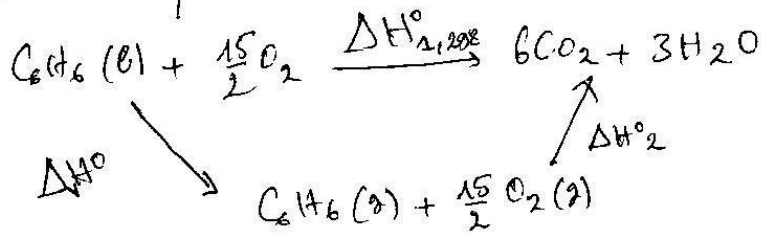 C₆H₆ (l) + 15/2 O₂ ΔH°₁,₂₉₈ 6CO₂ + 3H₂O
ΔH° ΔH°₂
C₆H₆ (g) + 15/2 O₂ (g)